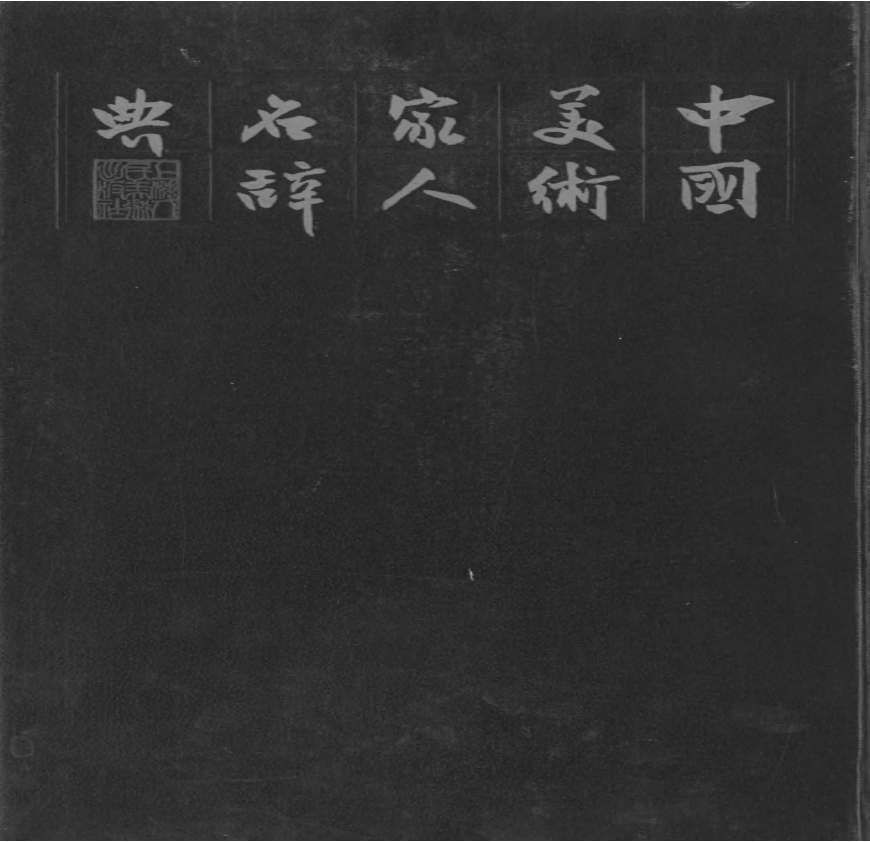 中國
美術
家人
名辭
典
上海人
民美術
出版社